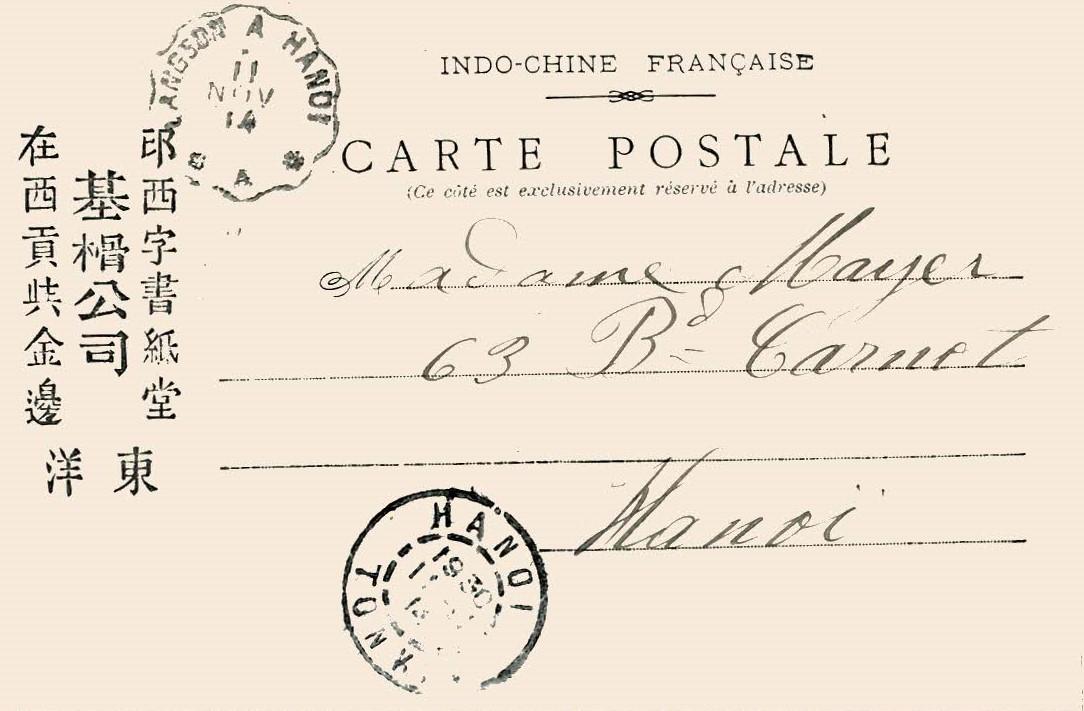 LANGSON A HANOI
11
NOV
14
A
INDO-CHINE FRANÇAISE
CARTE POSTALE
(Ce côté est exclusivement réservé à l'adresse)
Madame Mayer
63 Bd Carnet
Hanoï
印西字書紙堂
基榾公司
在西貢共金邊
東洋
HANOI
1930
TONK